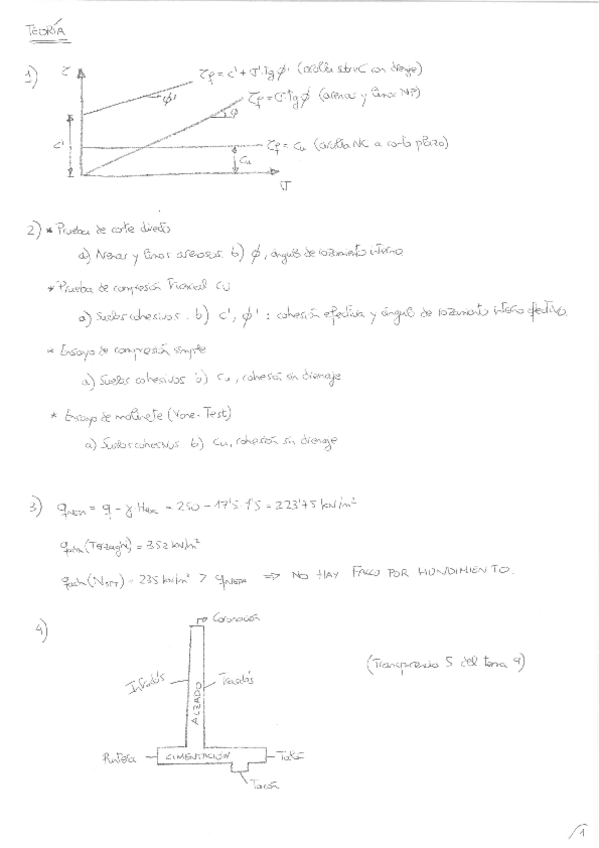 TEORÍA
1) τ
τf = c' + σ'·tg φ' (arcilla sobreC con drenaje)
φ'
τf = σ'·tg φ (arenas y limos NP)
φ
c'
τf = cu (arcilla NC a corto plazo)
cu
σ
2) * Pruebas de corte directo
a) Arenas y limos arenosos b) φ, ángulo de rozamiento interno
* Prueba de compresión Triaxial CU
a) Suelos cohesivos. b) c', φ' : cohesión efectiva y ángulo de rozamiento interno efectivo.
* Ensayo de compresión simple
a) Suelos cohesivos b) cu, cohesión sin drenaje
* Ensayo de molinete (Vane-Test)
a) Suelos cohesivos b) cu, cohesión sin drenaje
3) qneta = q - γ · = 250 - 17'5·1'5 = 223'75 kN/m²
qadm (Terzaghi) = 352 kN/m²
qadm (NSPT) = 235 kN/m² > qneta ⇒ NO HAY FALLO POR HUNDIMIENTO.
4)
Coronación
(Transparencia 5 del tema 9)
Intradós
Trasdós
ALZADO
Puntera
CIMENTACIÓN
Talón
Tacón
1